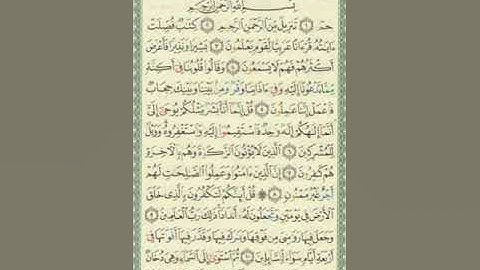 بِسْمِ ٱللَّهِ ٱلرَّحْمَٰنِ ٱلرَّحِيمِ
حمٓ ١ تَنزِيلٌ مِّنَ ٱلرَّحْمَٰنِ ٱلرَّحِيمِ ٢ كِتَٰبٌ فُصِّلَتْ
ءَايَٰتُهُۥ قُرْءَانًا عَرَبِيًّا لِّقَوْمٍ يَعْلَمُونَ ٣ بَشِيرًا وَنَذِيرًا فَأَعْرَضَ
أَكْثَرُهُمْ فَهُمْ لَا يَسْمَعُونَ ٤ وَقَالُوا۟ قُلُوبُنَا فِىٓ أَكِنَّةٍ
مِّمَّا تَدْعُونَآ إِلَيْهِ وَفِىٓ ءَاذَانِنَا وَقْرٌ وَمِنۢ بَيْنِنَا وَبَيْنِكَ حِجَابٌ
فَٱعْمَلْ إِنَّنَا عَٰمِلُونَ ٥ قُلْ إِنَّمَآ أَنَا۠ بَشَرٌ مِّثْلُكُمْ يُوحَىٰٓ إِلَىَّ
أَنَّمَآ إِلَٰهُكُمْ إِلَٰهٌ وَٰحِدٌ فَٱسْتَقِيمُوٓا۟ إِلَيْهِ وَٱسْتَغْفِرُوهُ وَوَيْلٌ
لِّلْمُشْرِكِينَ ٦ ٱلَّذِينَ لَا يُؤْتُونَ ٱلزَّكَوٰةَ وَهُم بِٱلْءَاخِرَةِ
هُمْ كَٰفِرُونَ ٧ إِنَّ ٱلَّذِينَ ءَامَنُوا۟ وَعَمِلُوا۟ ٱلصَّٰلِحَٰتِ لَهُمْ
أَجْرٌ غَيْرُ مَمْنُونٍ ٨ ۞ قُلْ أَئِنَّكُمْ لَتَكْفُرُونَ بِٱلَّذِى خَلَقَ
ٱلْأَرْضَ فِى يَوْمَيْنِ وَتَجْعَلُونَ لَهُۥٓ أَندَادًا ذَٰلِكَ رَبُّ ٱلْعَٰلَمِينَ ٩
وَجَعَلَ فِيهَا رَوَٰسِىَ مِن فَوْقِهَا وَبَٰرَكَ فِيهَا وَقَدَّرَ فِيهَآ أَقْوَٰتَهَا فِىٓ
أَرْبَعَةِ أَيَّامٍ سَوَآءً لِّلسَّآئِلِينَ ١٠ ثُمَّ ٱسْتَوَىٰٓ إِلَى ٱلسَّمَآءِ وَهِىَ دُخَانٌ